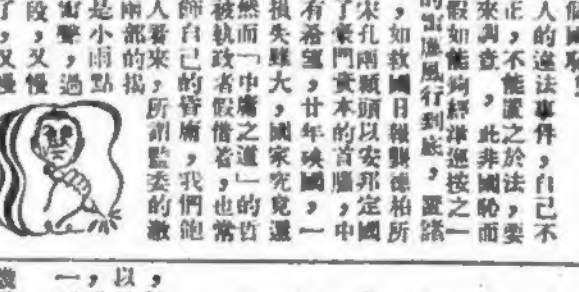 個國恥？
人的違法事件，自己不
正，不能置之於法，要
來調查，此非國恥而
假如能夠經漳運按之一
的雷進風行到底，置諸
，如救國日報龔德柏所
宋孔兩顆頭以安邦定國
了豪門資本的首腦，中
有希望，廿年禍國，一
損失雖大，國家究竟還
然而「中庸之道」的哲
被執政者假借着，也常
飾自己的昏庸，我們飽
人看來，所謂監委的激
兩部的揭
是小雨點
雷聲，過
段，又慢
了，又慢
，
以
，
一
機